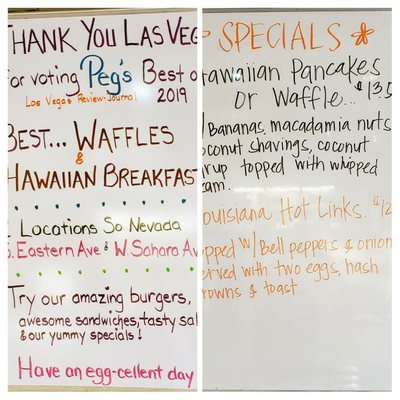 THANK YOU LAS VEG
for voting Peg's Best o
Las Vegas Review-Journal 2019
BEST... WAFFLES
&
HAWAIIAN BREAKFAST
Locations So. Nevada
S. Eastern Ave & W. Sahara Av
Try our amazing burgers,
awesome sandwiches, tasty sal
& our yummy specials!
Have an egg-cellent day
SPECIALS
Hawaiian Pancakes
or Waffle... $13.5
w/ Bananas, macadamia nuts
coconut shavings, coconut
syrup topped with whipped
cream.
Louisiana Hot Links. $12
topped w/ Bell peppers & onion
served with two eggs, hash
browns & toast.